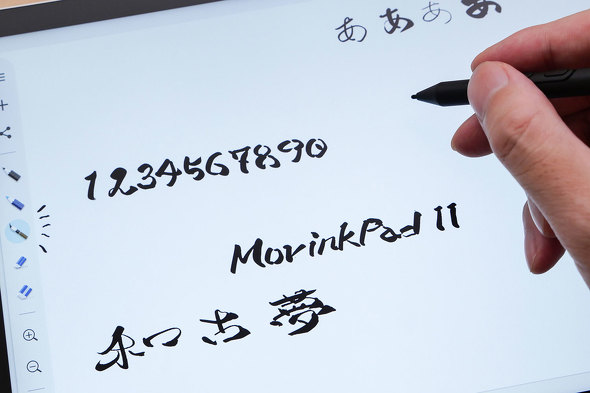 ああああ
1234567890
MovinkPad 11
和古夢